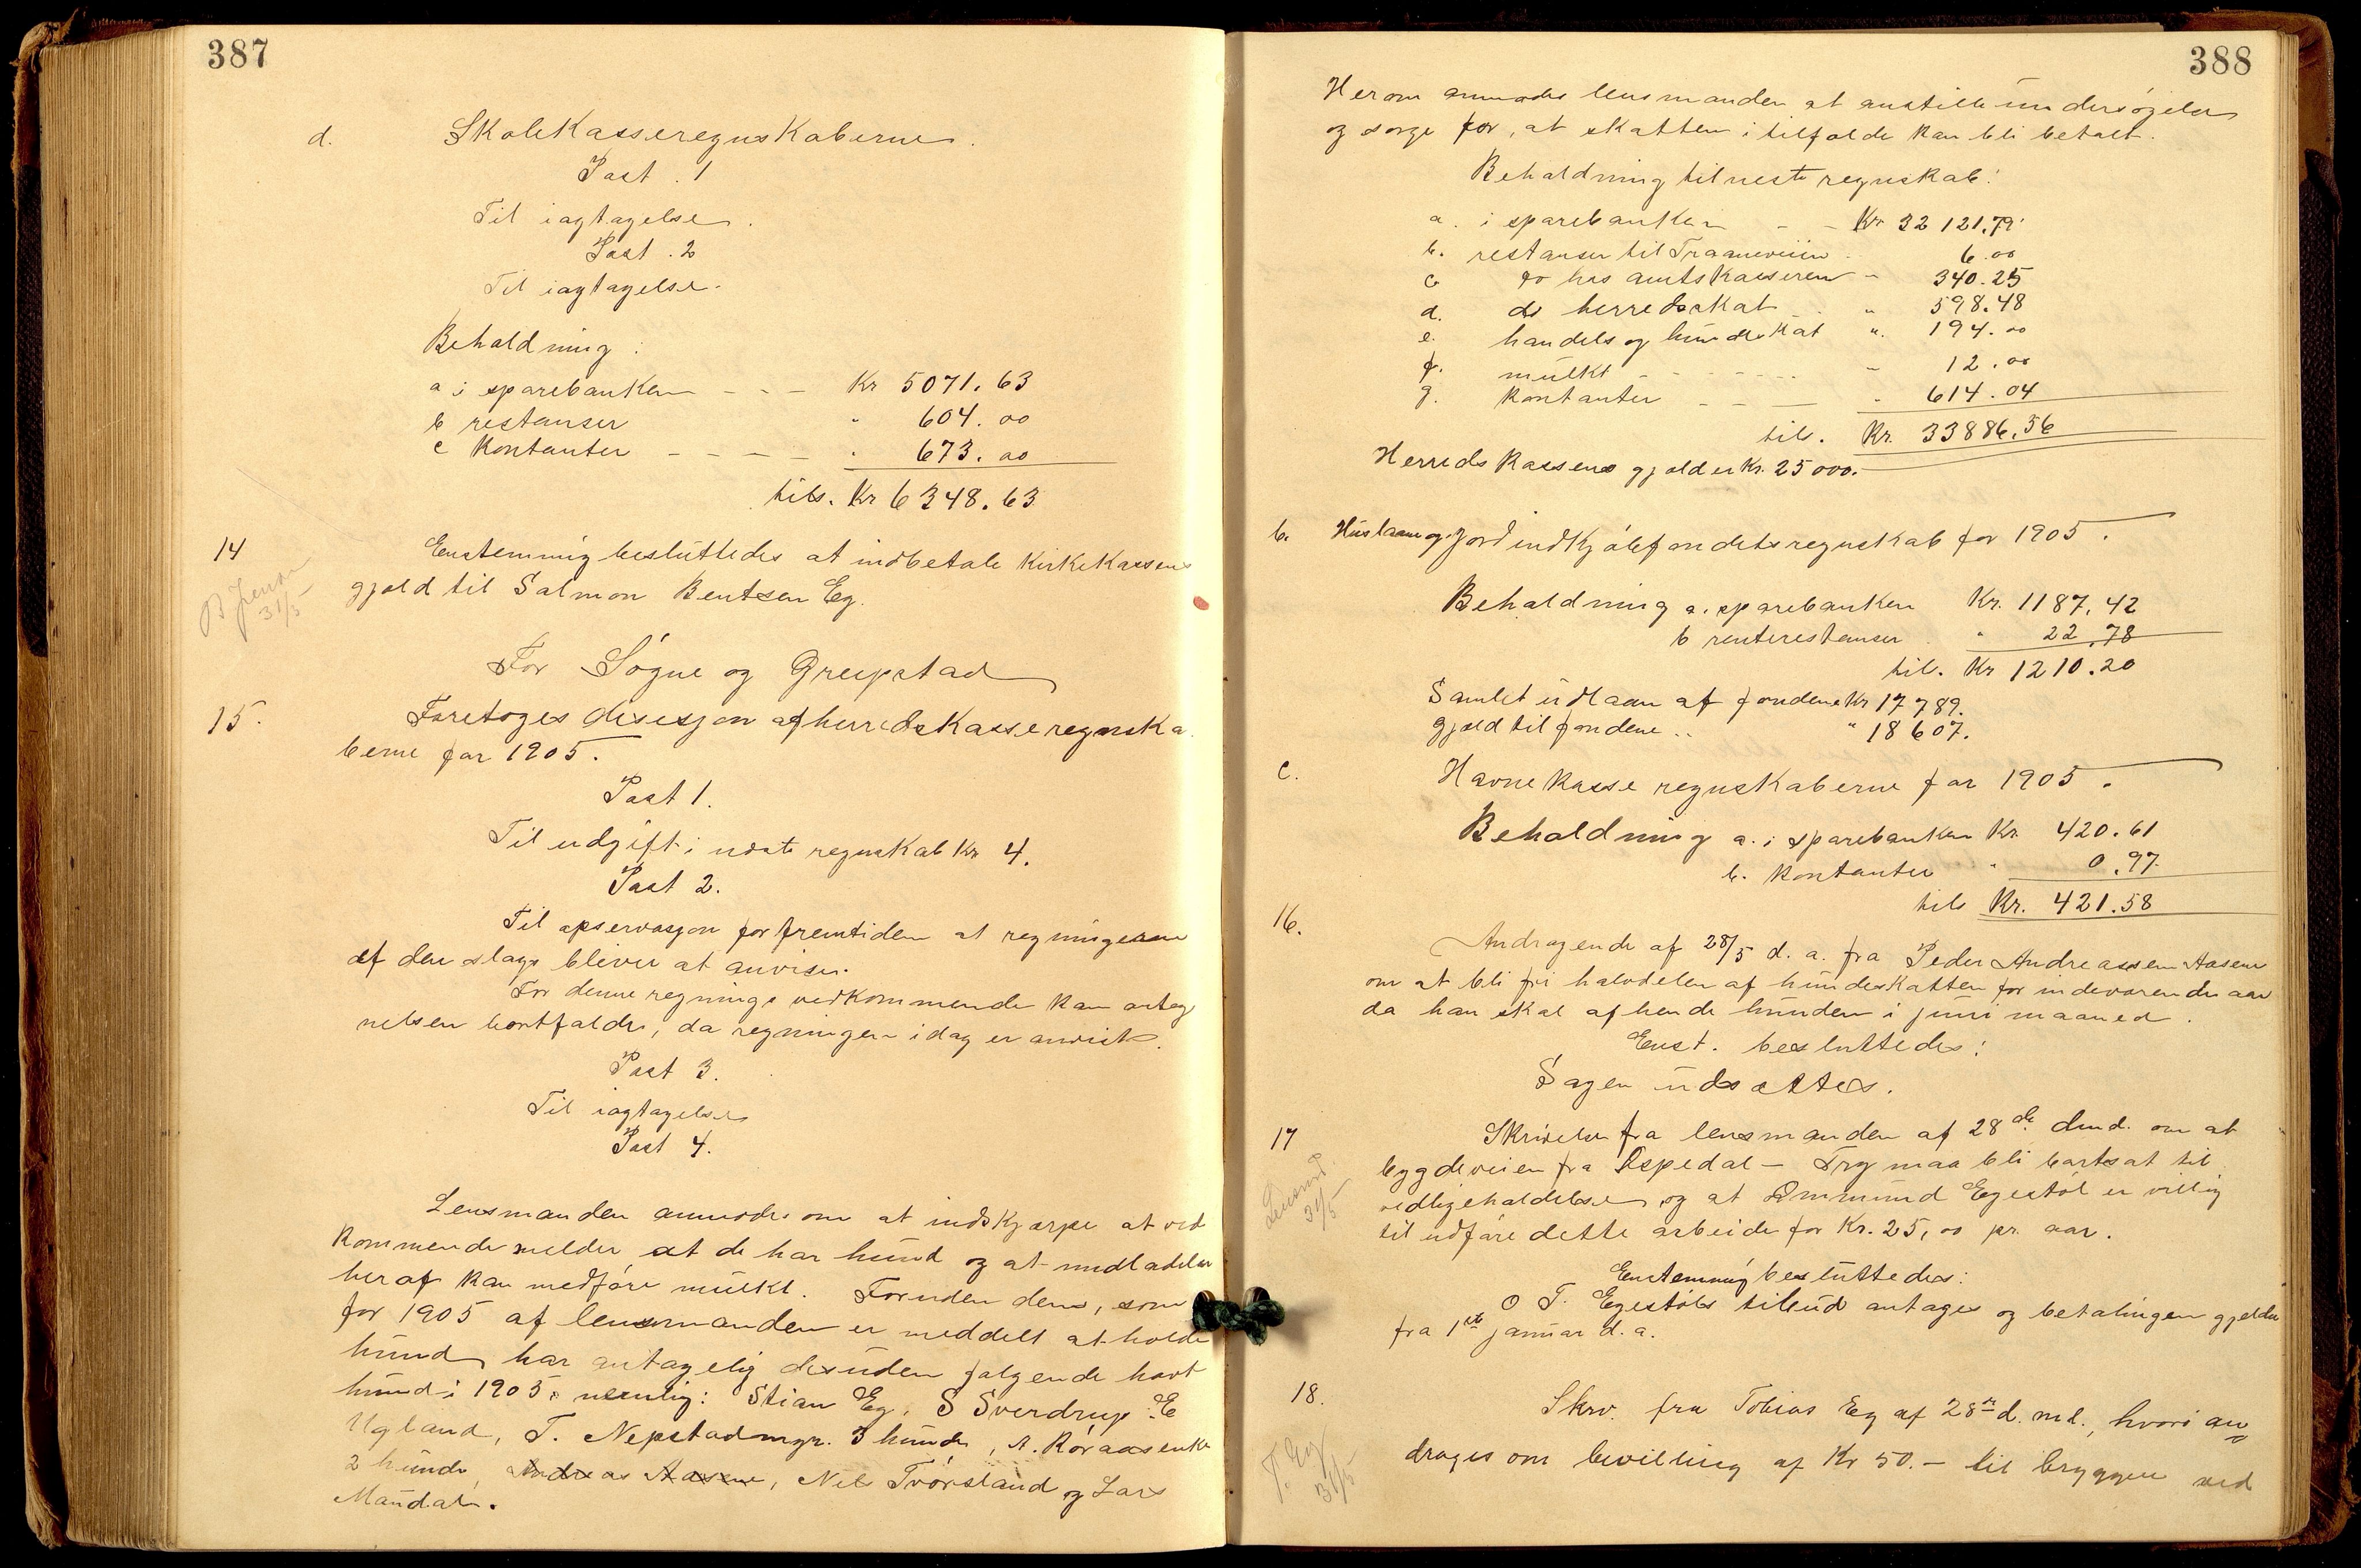 387
d. Skolekasseregnskaberne.
Post. 1
Til iagtagelse.
Post. 2
Til iagtagelse.
Beholdning:
a i sparebanken - - - Kr 5071.63
b restanser " 604.00
c kontanter - - - - " 673.00
tils. Kr 6348.63
14 Enstemmig besluttedes at indbetale kirkekassens
gjæld til Salmon Bentsen Eg.
B Jensen
31/5
For Søgne og Greipstad
15. Foretoges desisjon af herredskasseregnska
berne for 1905.
Post 1.
Til udgift i næste regnskab Kr 4.
Post 2.
Til opservasjon for fremtiden at regningerne
af den slags bliver at anvise.
For denne regnings vedkommende kan anteg
nelsen bortfalde, da regningen idag er anvist.
Post 3.
Til iagtagelse
Post 4.
Lensmanden anmodes om at indskjærpe at ved
kommende melder at de har hund og at undladelse
heraf kan medføre mulkt. Foruden dem, som
for 1905 af lensmanden er meddelt at holde
hund har antagelig desuden følgende havt
hund i 1905, nemlig: Stian Eg, S Sverdrup, E
Ugland, T. Nepstadmyr. 3 hunde, A. Røraasenke
2 hunde, Andreas Aasene, Nils Tvørsland og Lars
Mandal.
388
Herom anmodes lensmanden at anstille undersøgelse
og sørge for, at skatten i tilfælde kan bli betalt.
Beholdning til neste regnskab:
a. i sparebanken - - Kr 32 121.79
b. restanser til Traaneveien - 6.00
c do hos amtskasseren - 340.25
d. do herredsskat - " 598.48
e. handels og hundeskat " 194.00
f. mulkt - - - - - 12.00
g. kontanter - - - " 614.04
tils. Kr. 33886.56
Herredskassens gjæld er Kr. 25000.-
b. Huslaane og jordindkjøbsfondets regnskab for 1905.
Beholdning a. sparebanken Kr. 1187.42
b renterestanser " 22.78
til. Kr 1210.20
Samlet udlaan af fondene Kr 17789.
gjæld til fondene .. " 18607.
c. Havnekasse regnskaberne for 1905.
Beholdning a. i sparebanken Kr. 420.61
b. kontanter " 0.97
tils Kr. 421.58
16.
Andragende af 28/5 d. a. fra Peder Andreassen Aasene
om at bli fri halvdelen af hundeskatten for indeværende aar
da han skal afhende hunden i juni maaned.
Enst. besluttedes:
Sagen udsættes.
17 Skrivelse fra lensmanden af 28de dmd. om at
bygdeveien fra Repedal - Try maa bli bortsat til
vedligeholdelse og at Ommund Egestøl er villig
til udføre dette arbeide for Kr. 25,00 pr. aar.
Lensmd.
31/5
Enstemmig besluttedes:
O T. Egestøls tilbud antages og betalingen gjelder
fra 1ste januar d. a.
18. Skrv. fra Tobias Eg af 28de d. md., hvori an
drages om bevilling af Kr 50.- til bryggen ved
T. Eg
31/5